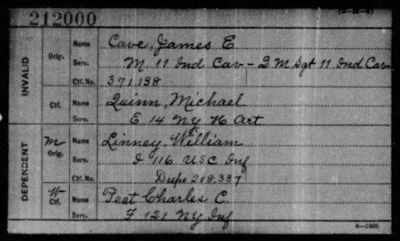 212000
INVALID
Orig. Name Cave, James E.
Serv. M. 11 Ind Cav - Q M Sgt 11 Ind Cav
Ctf. No. 371.138
Ctf. Name Quinn, Michael
Serv. E 14 NY H Art
DEPENDENT
M Orig. Name Linney, William
Serv. I 116 USC Inf
Ctf. No. Dupo 208,337
W Ctf. Name Peet Charles C.
Serv. F 121 NY Inf